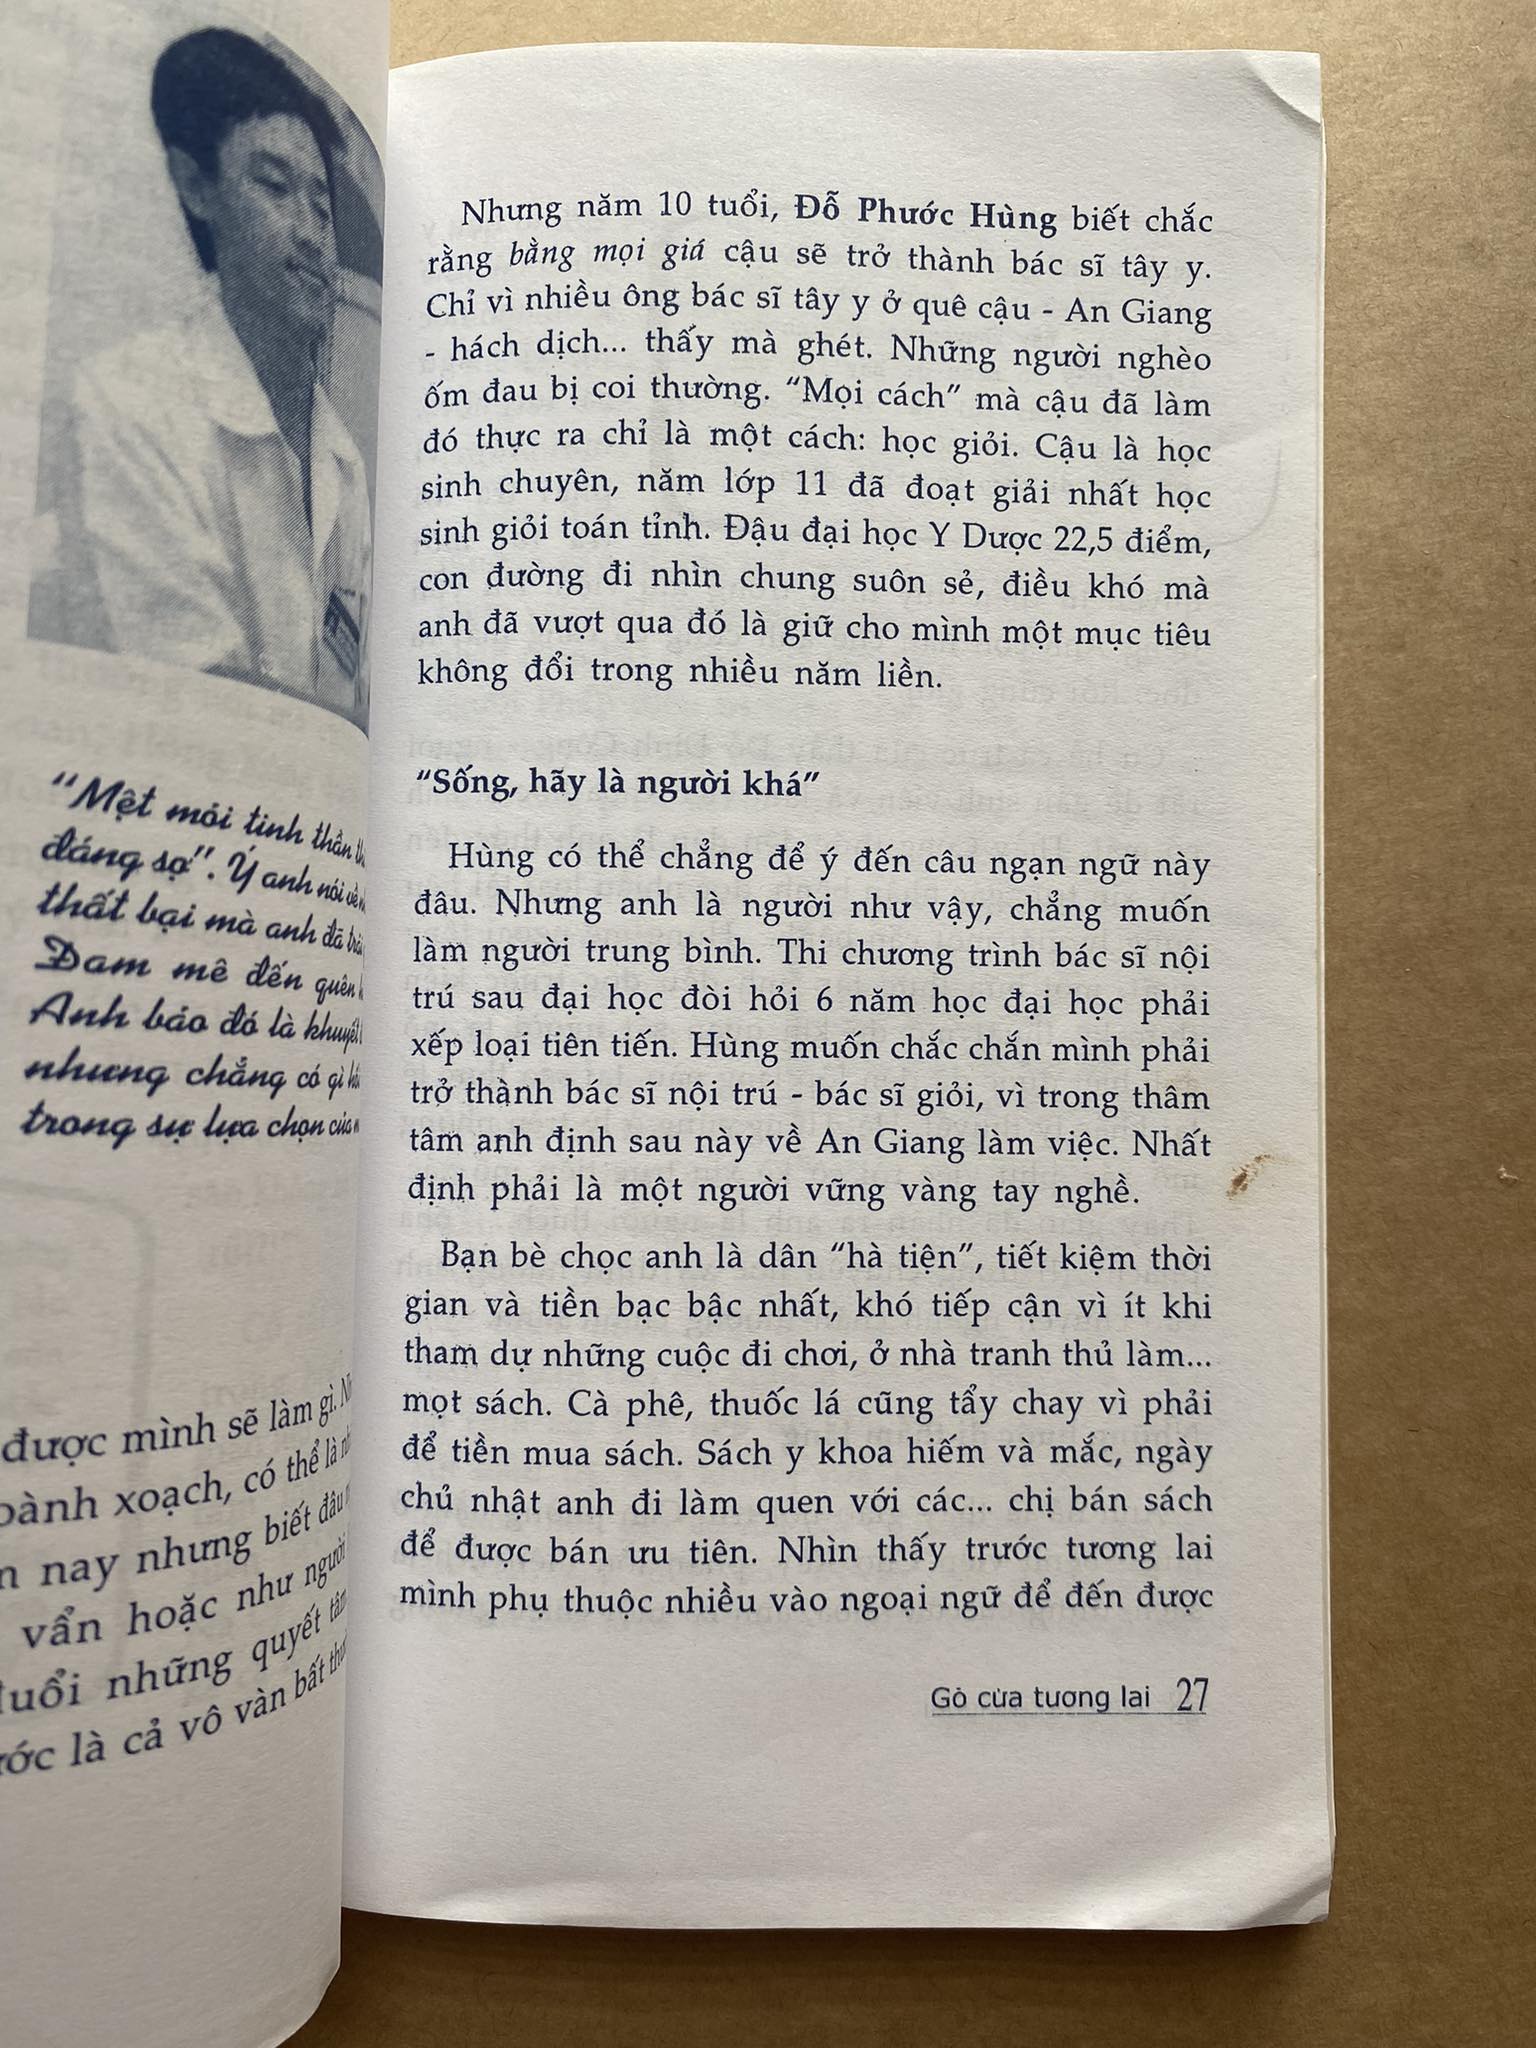 "Mệt mỏi tinh thần
đáng sợ". Ý anh nói về
thất bại mà anh đã
Đam mê đến quên
Anh bảo đó là khuyết
nhưng chẳng có gì
trong sự lựa chọn của
được mình sẽ làm gì.
xoạch, có thể là
nay nhưng biết đâu
vẩn hoặc như người
đuổi những quyết
là cả vô vàn bất
Nhưng năm 10 tuổi, Đỗ Phước Hùng biết chắc
rằng bằng mọi giá cậu sẽ trở thành bác sĩ tây y.
Chỉ vì nhiều ông bác sĩ tây y ở quê cậu - An Giang
- hách dịch... thấy mà ghét. Những người nghèo
ốm đau bị coi thường. “Mọi cách” mà cậu đã làm
đó thực ra chỉ là một cách: học giỏi. Cậu là học
sinh chuyên, năm lớp 11 đã đoạt giải nhất học
sinh giỏi toán tỉnh. Đậu đại học Y Dược 22,5 điểm,
con đường đi nhìn chung suôn sẻ, điều khó mà
anh đã vượt qua đó là giữ cho mình một mục tiêu
không đổi trong nhiều năm liền.
“Sống, hãy là người khá”
Hùng có thể chẳng để ý đến câu ngạn ngữ này
đâu. Nhưng anh là người như vậy, chẳng muốn
làm người trung bình. Thi chương trình bác sĩ nội
trú sau đại học đòi hỏi 6 năm học đại học phải
xếp loại tiên tiến. Hùng muốn chắc chắn mình phải
trở thành bác sĩ nội trú - bác sĩ giỏi, vì trong thâm
tâm anh định sau này về An Giang làm việc. Nhất
định phải là một người vững vàng tay nghề.
Bạn bè chọc anh là dân “hà tiện”, tiết kiệm thời
gian và tiền bạc bậc nhất, khó tiếp cận vì ít khi
tham dự những cuộc đi chơi, ở nhà tranh thủ làm...
mọt sách. Cà phê, thuốc lá cũng tẩy chay vì phải
để tiền mua sách. Sách y khoa hiếm và mắc, ngày
chủ nhật anh đi làm quen với các... chị bán sách
để được bán ưu tiên. Nhìn thấy trước tương lai
mình phụ thuộc nhiều vào ngoại ngữ để đến được
Gõ cửa tương lai 27